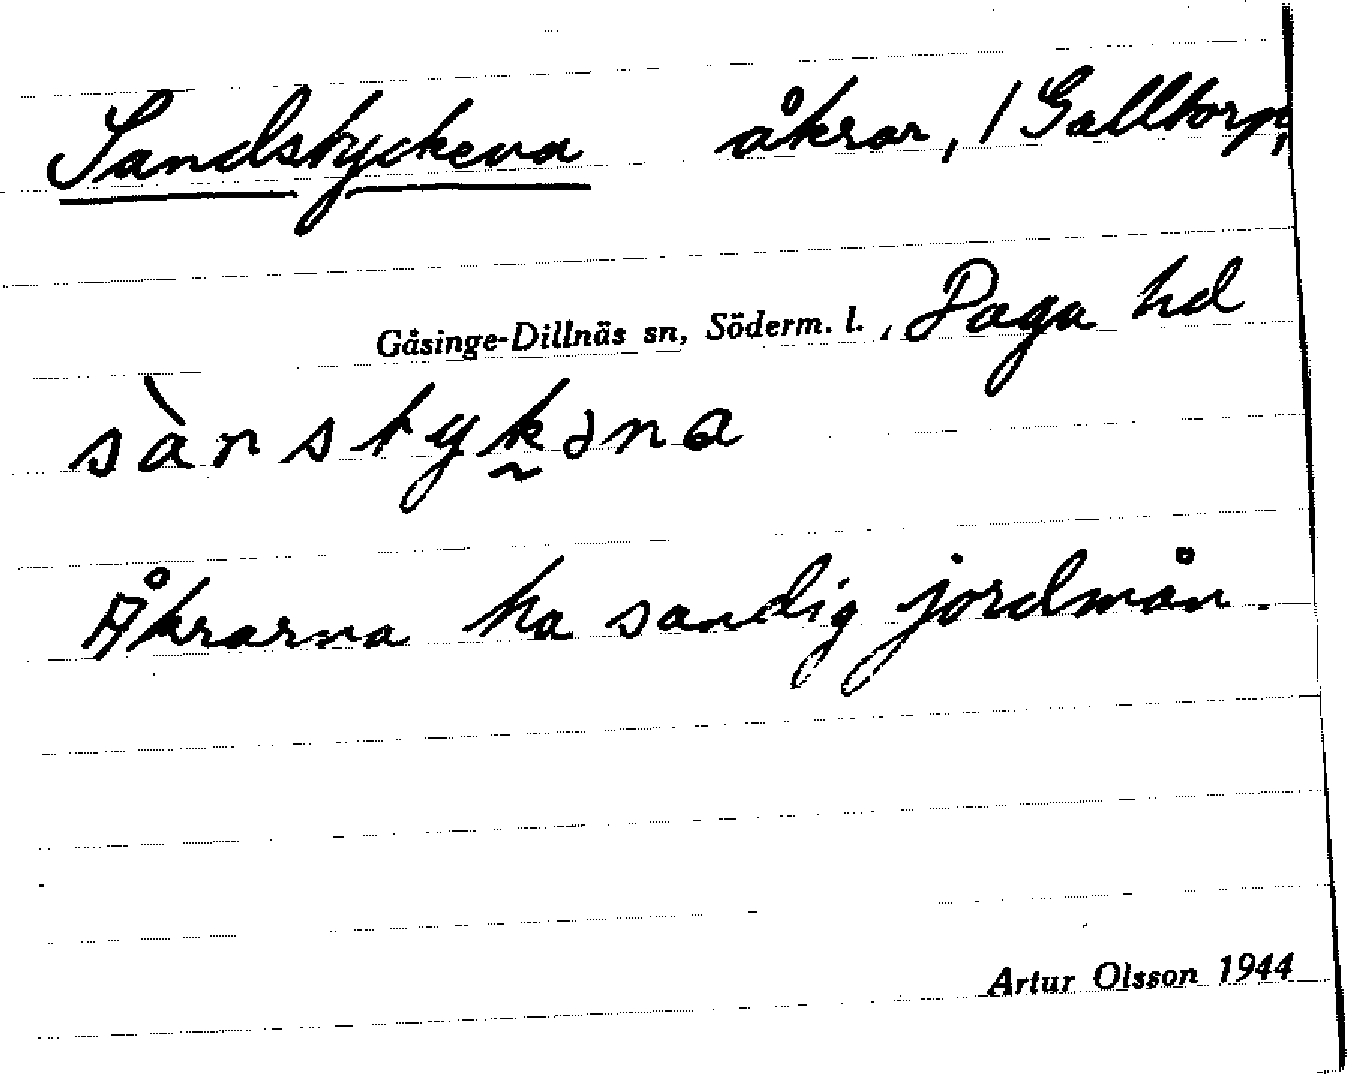 Sandstyckena åkrar, / Galltorp,
Gåsinge-Dillnäs sn, Söderm. l., Daga hd
sànstyk̰əna
Åkrarna ha sandig jordmån.
Artur Olsson 1944